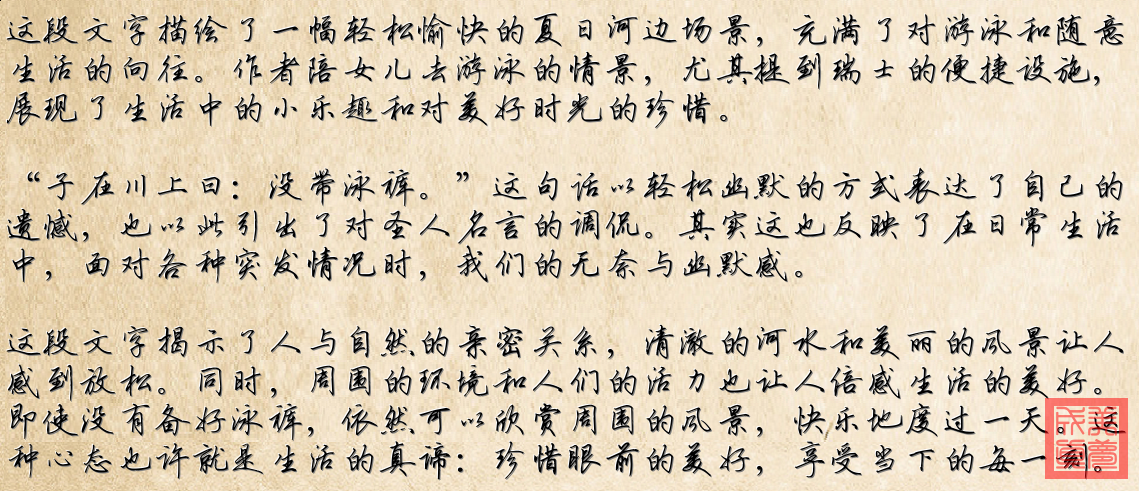 这段文字描绘了一幅轻松愉快的夏日河边场景，充满了对游泳和随意
生活的向往。作者陪女儿去游泳的情景，尤其提到瑞士的便捷设施，
展现了生活中的小乐趣和对美好时光的珍惜。
“子在川上曰：没带泳裤。”这句话以轻松幽默的方式表达了自己的
遗憾，也以此引出了对圣人名言的调侃。其实这也反映了在日常生活
中，面对各种突发情况时，我们的无奈与幽默感。
这段文字揭示了人与自然的亲密关系，清澈的河水和美丽的风景让人
感到放松。同时，周围的环境和人们的活力也让人倍感生活的美好。
即使没有备好泳裤，依然可以欣赏周围的风景，快乐地度过一天。这
种心态也许就是生活的真谛：珍惜眼前的美好，享受当下的每一刻。